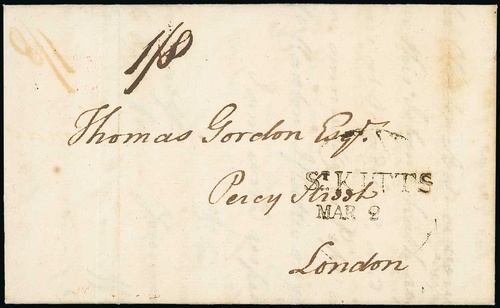 1/8
Thomas Gordon Esqr.
St KITTS
Percy Street
MAR 9
London